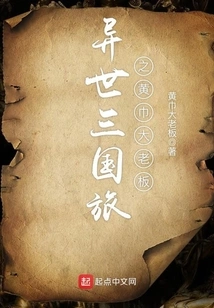 异世三国旅
之黄巾大老板
黄巾大老板◎著
起点中文网